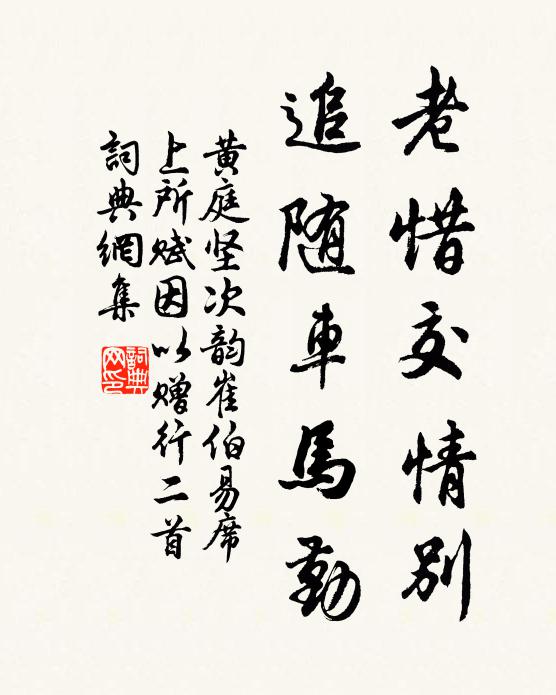 老惜交情别
追随車馬勤
黄庭坚次韵崔伯易席
上所赋因以赠行二首
詞典網集
詞典网印